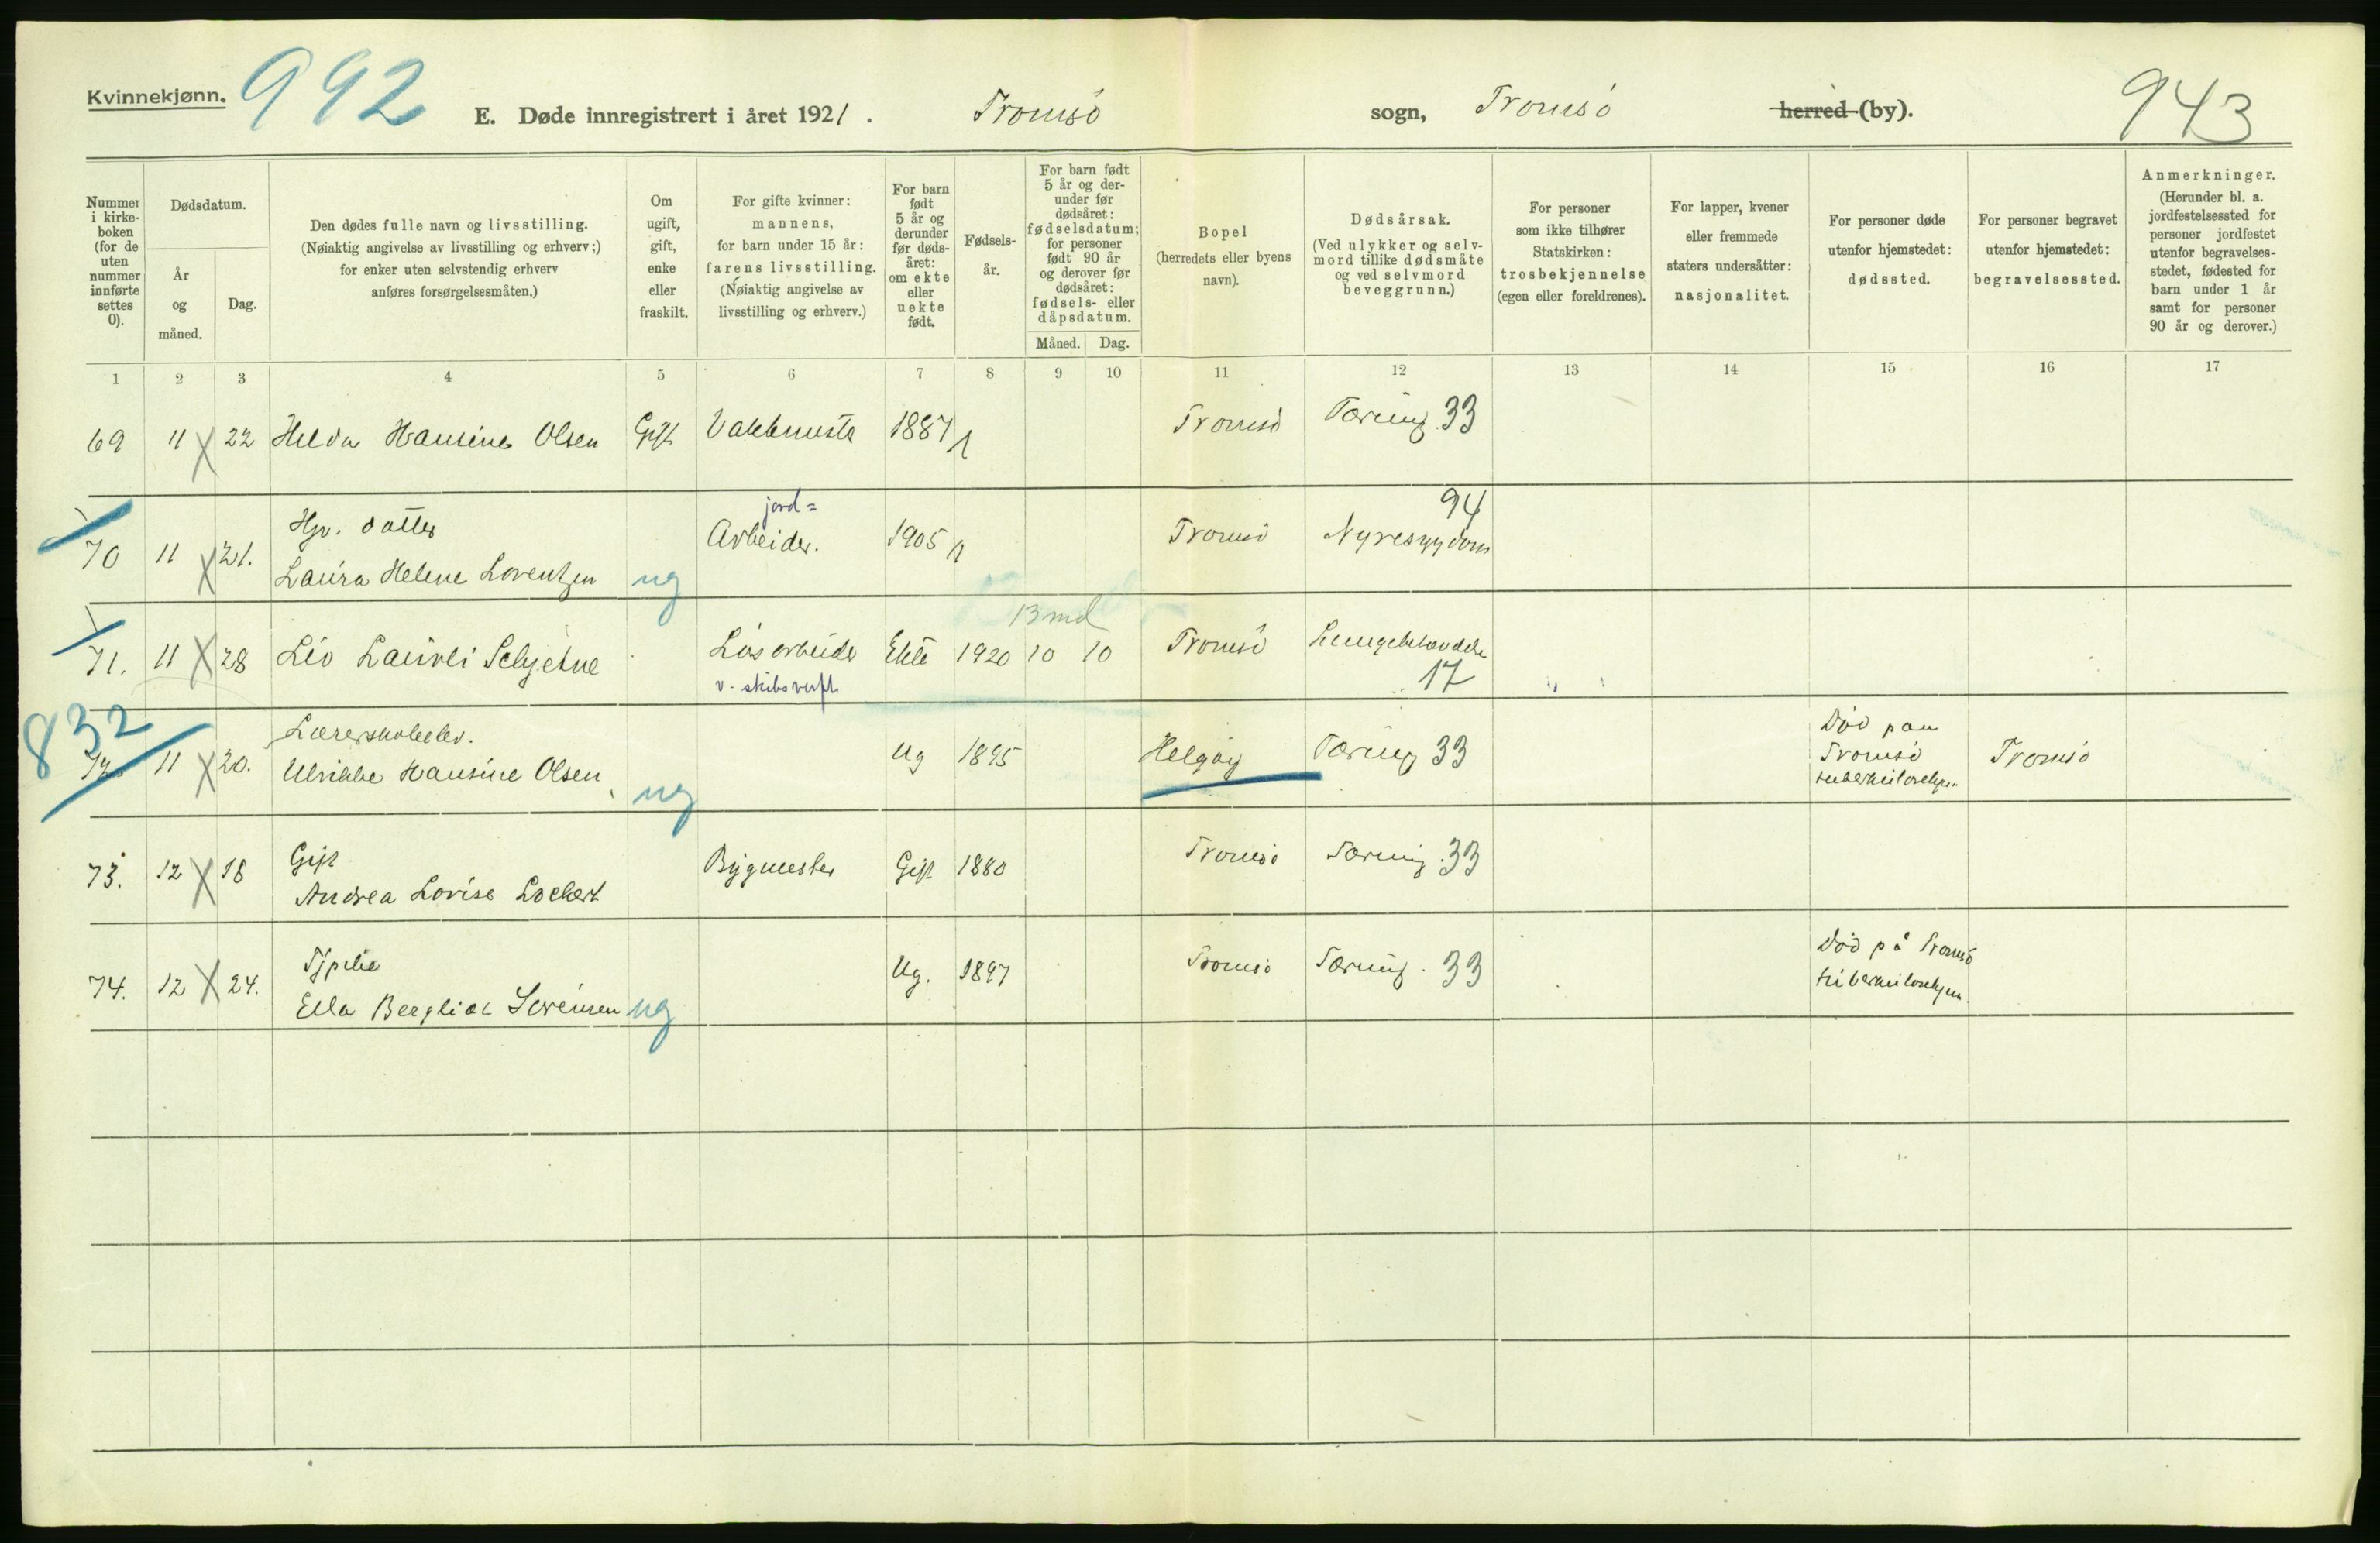 Kvinnekjønn. 992
E. Døde innregistrert i året 1921. Tromsö sogn, Tromsö herred (by). 943
Nummer i kirkeboken (for de uten nummer innførte settes 0).
Dødsdatum.
År og måned.
Dag.
Den dødes fulle navn og livsstilling.
(Nøiaktig angivelse av livsstilling og erhverv;)
for enker uten selvstendig erhverv
anføres forsørgelsesmåten.)
Om ugift, gift, enke eller fraskilt.
For gifte kvinner:
mannens,
for barn under 15 år:
farens livsstilling.
(Nøiaktig angivelse av
livsstilling og erhverv.)
For barn født 5 år og derunder før dødsåret: om ekte eller uekte født.
Fødselsår.
For barn født 5 år og derunder før dødsåret: fødselsdatum; for personer født 90 år og derover før dødsåret: fødsels- eller dåpsdatum.
Måned. Dag.
Bopel
(herredets eller byens
navn).
Dødsårsak.
(Ved ulykker og selvmord tillike dødsmåte og ved selvmord beveggrunn.)
For personer
som ikke tilhører
Statskirken:
trosbekjennelse
(egen eller foreldrenes).
For lapper, kvener
eller fremmede
staters undersåtter:
nasjonalitet.
For personer døde
utenfor hjemstedet:
dødssted.
For personer begravet
utenfor hjemstedet:
begravelsessted.
Anmerkninger.
(Herunder bl. a.
jordfestelsessted for
personer jordfestet
utenfor begravelses-
stedet, fødested for
barn under 1 år
samt for personer
90 år og derover.)
1 2 3 4 5 6 7 8 9 10 11 12 13 14 15 16 17
69 11 22 Hilda Hansine Olsen Gift 1887 Tromsö Tæring. 33
jord= 94
Hjv. datter
70 11 21. Laura Helene Lorentzen ug Arbeider. 1905 Tromsö Nyresygdom
13 md
71. 11 28 Liv Laurli Selyetne Lösarbeider Ekte 1920 10 10 Tromsö Lungebetændelse
v. skibsverft 17
832
Lærerskoleelev.
72. 11 20. Ulrikke Hansine Olsen ug Ug 1895 Helgøy Tæring 33 Död paa Tromsö tuberkulosehjem Tromsö
Gift
73. 12 18 Andrea Lovise Lockert Bygmester Gift 1880 Tromsö Tæring. 33
74. 12 24. Ella Bergliot Sörensen ug Ug. 1897 Tromsö Tæring. 33 Död på Tromsö tuberkulosehjem.